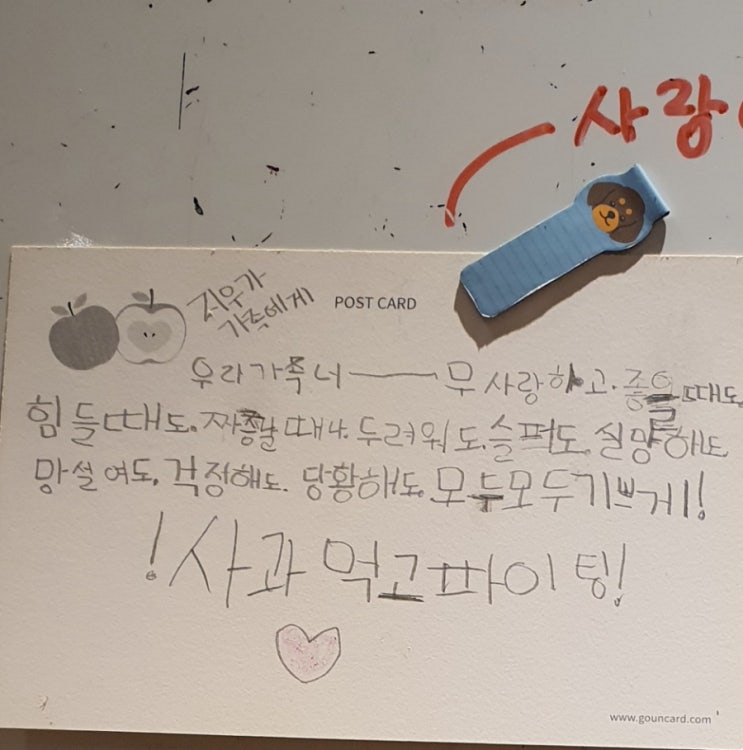 사랑
지우가
가족에게
POST CARD
우리가족너──무 사랑하고. 좋을때도.
힘들때도. 짜증날때나. 두려워도. 슬퍼도. 실망해도
망설여도. 걱정해도. 당황해도. 모두모두기쁘게!
!사과먹고파이팅!
www.gouncard.com